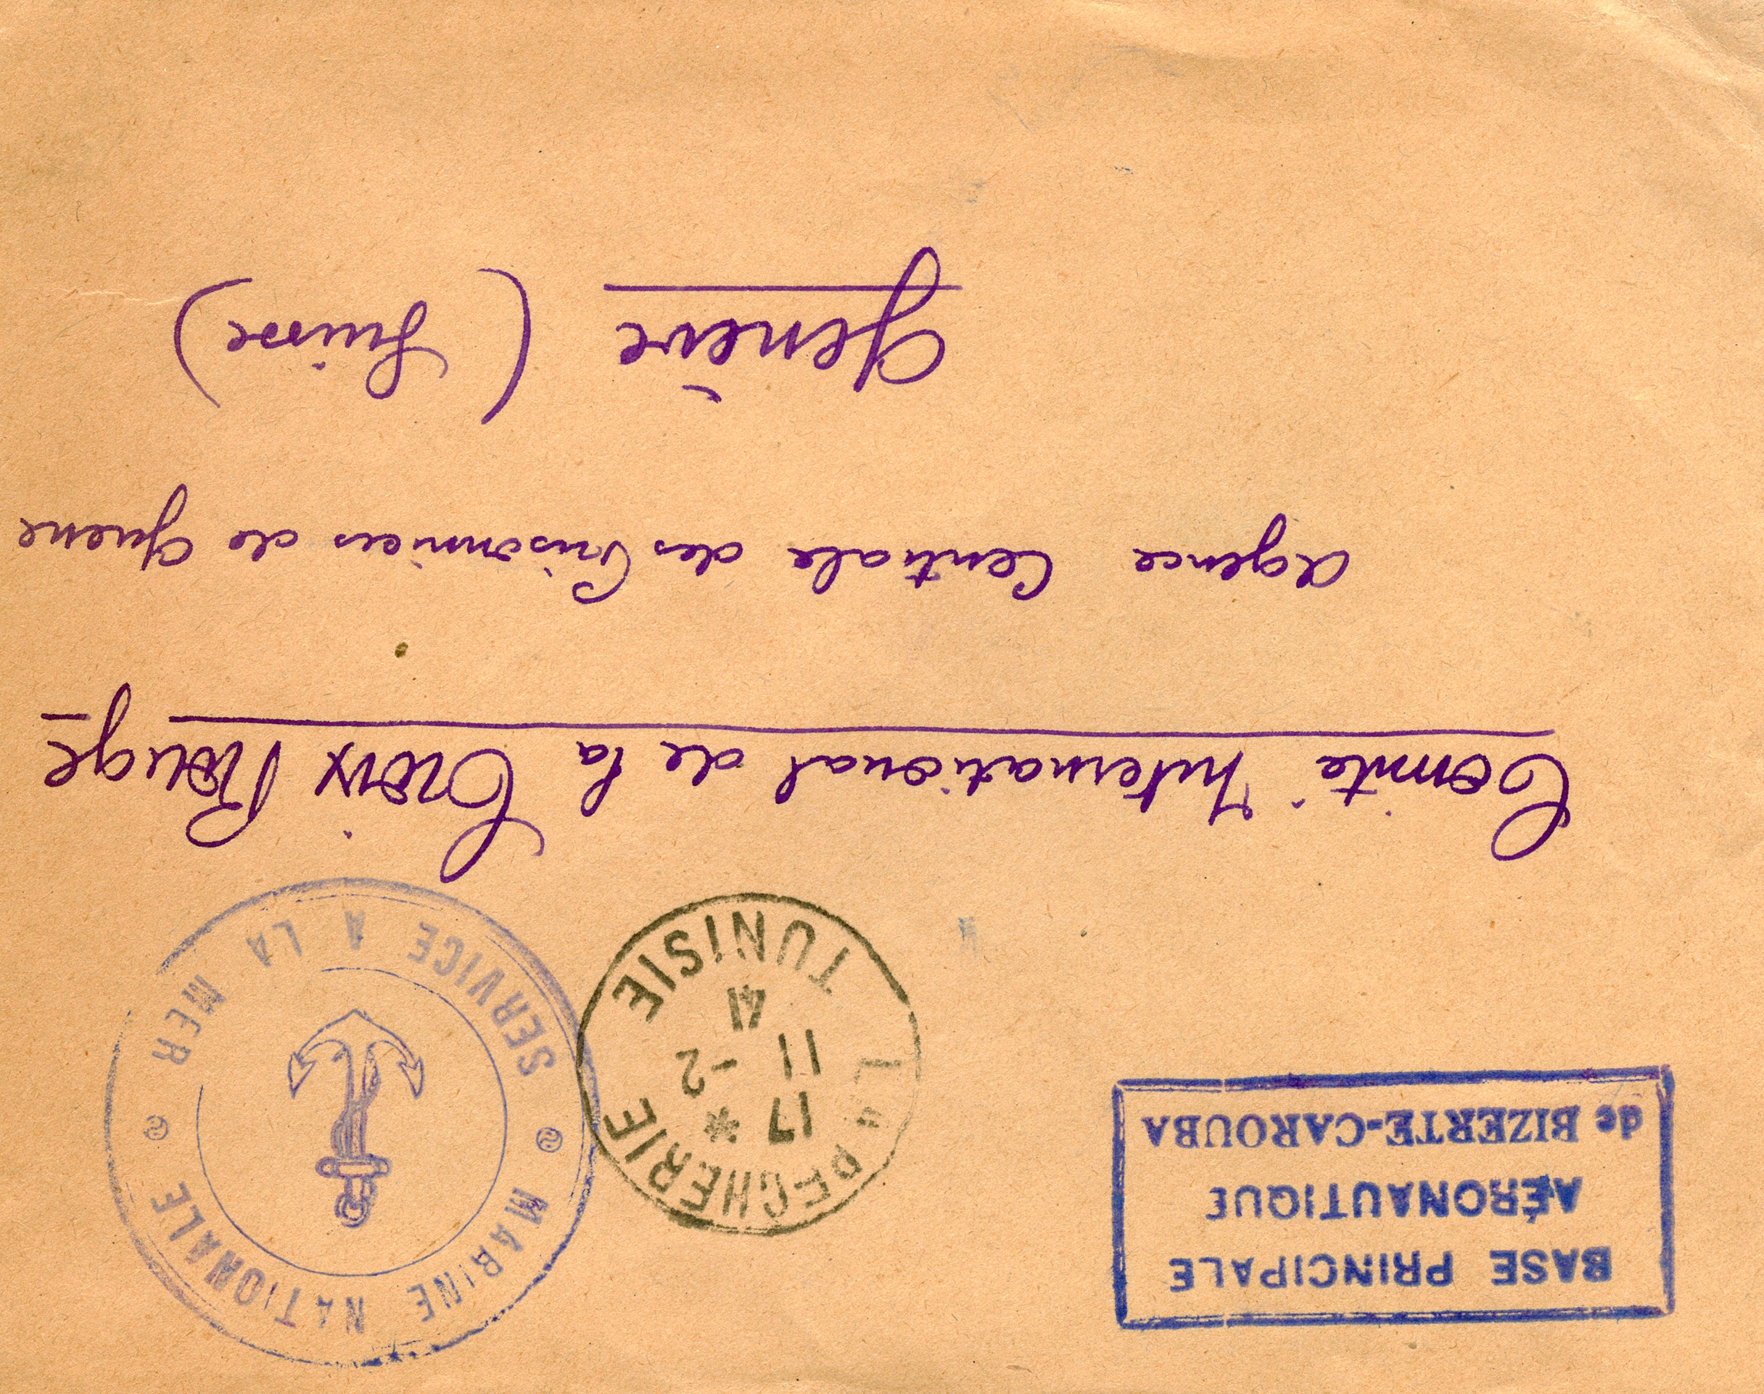 BASE PRINCIPALE
AÉRONAUTIQUE
de BIZERTE-CAROUBA
LA PECHERIE
17 *
11 -2
41
TUNISIE
MARINE NATIONALE
SERVICE A LA MER
Comité International de la Croix Rouge
Agence Centrale des Prisonniers de Guerre
Genève (Suisse)